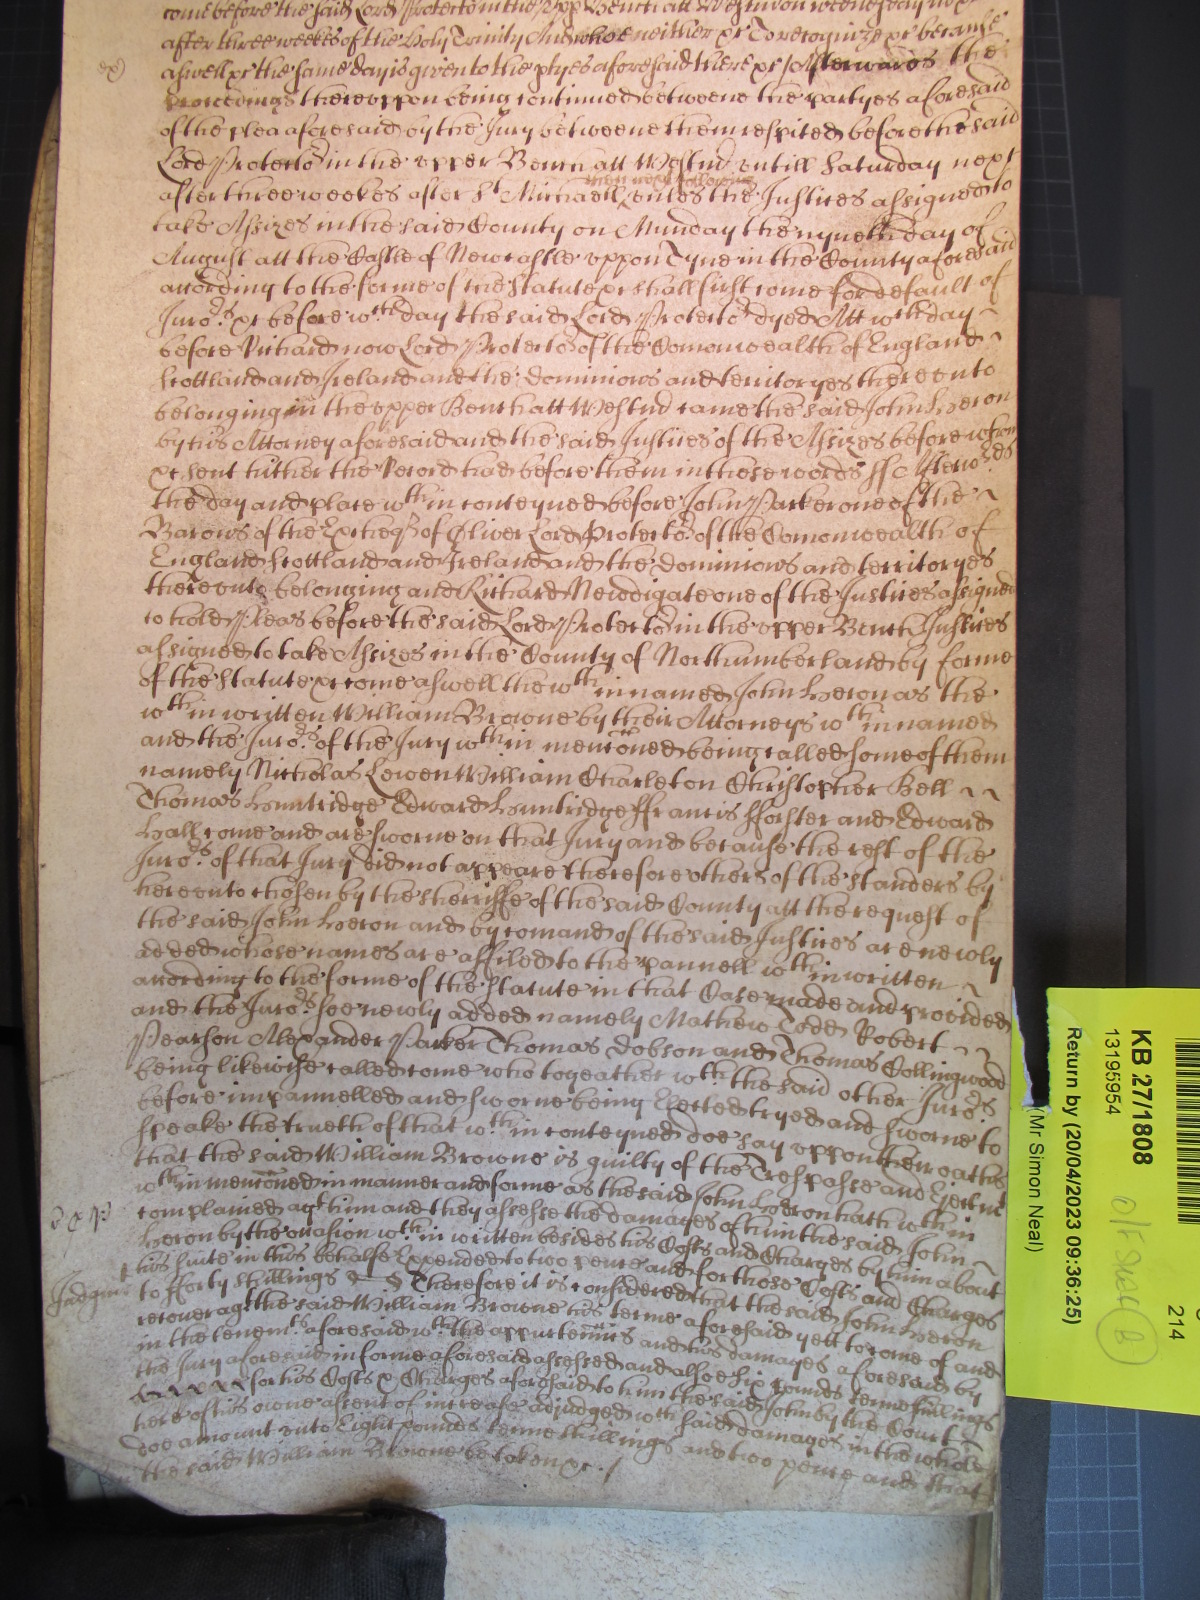 come before the said Lord Protector in the upp Bench att Westm on wednesday next
after three weekes of the Holy Trinity And whoe neither &c To recognize &c because
aswell &c the same day is given to the ptyes aforesaid there &c Afterwards the
proceedings thereuppon being continued betweene the partyes aforesaid
of the plea aforesaid by the Jury betweene them respited before the said
Lord Protector in the upper Bench att Westmr untill Saturday next
then next following
after three weekes after St Michaell unles the Justices assigned to
take Assizes in the said County on Munday the nyneth day of
August att the Castle of Newcastle uppon Tyne in the County aforesaid
according to the forme of the Statute &c shall first come for default of
Juro.rs &c before wch day the said Lord Protector dyed Att wch day ~
before Richard now Lord Protector of the Comonwealth of England ~
Scottland and Ireland and the dominions and territoryes thereunto
belonging in the upper Bench att Westmr came the said John Heron
by his Attorney aforesaid and the said Justices of the Assizes before whom
&c sent hither the Record had before them in these words ss Afterwards
the day and place wthin conteyned before John Parker one of the ~
Barons of the Excheqr of Oliver Lord Protector of the Comonwealth of
England Scottland and Ireland and the dominions and territoryes
thereunto belonging and Richard Newdigate one of the Justices assigned
to hold Pleas before the said Lord Protector in the upper Bench Justices
assigned to take Assizes in the County of Northumberland by forme
of the Statute &c come aswell the wthin named John Heron as the
wthin written William Browne by their Attorneys wthin named
and the Juro.rs of the Jury wthin menconed being called some of them
namely Nicholas Lewen William Charleton Christopher Bell ~ ~
Thomas Huntridge Edward Huntridge ffrancis fforster and Edward
Hall come and are sworne on that Jury and because the rest of the
Juro.rs of that Jury did not appeare therefore others of the standers by
hereunto chosen by the sherriffe of the said County att the request of
the said John Heron and by comand of the said Justices are newly
added whose names are affiled to the pannell wthin written ~
according to the forme of the Statute in that Case made and provided
and the Juro.rs soe newly added namely Mathew Todd Robert ~ ~
Pearson Alexander Parker Thomas Dobson and Thomas Collingwood
being likewise called come who togeather wth the said other Juro.rs
before impannelled and sworne being Elected tryed and sworne to
speake the trueth of that wthin conteyned doe say uppon their oathes
that the said William Browne is guilty of the Trespasse and Ejectmt
wthin menconed in manner and forme as the said John Heron hath wthin
complained agt him and they assesse the damages of him the said John ~
Heron by the occasion wthin written besides his Costs and Charges by him about
his suite in this behalfe Expended to two pence and for those Costs and Charges
Judgmt
to fforty shillings Therefore it is considered that the said John Heron
recover agt the said William Browne his terme aforesaid yett to come of and
in the tenemts aforesaid wth the appurtennces and his damages aforesaid by
the Jury aforesaid in forme aforesaid assessed and alsoe six pounds tenne shillings
for his Costs & Charges aforesaid to him the said John by the Court ~
here of his owne assent of increase adjudged wch said damages in the whole
doe amount unto Eight pounds tenne shillings and two pence and that
the said William Browne be taken &c. /
KB 27/1808
13195954
Return by (20/04/2023 09:36:25)
(Mr Simon Neal)
214